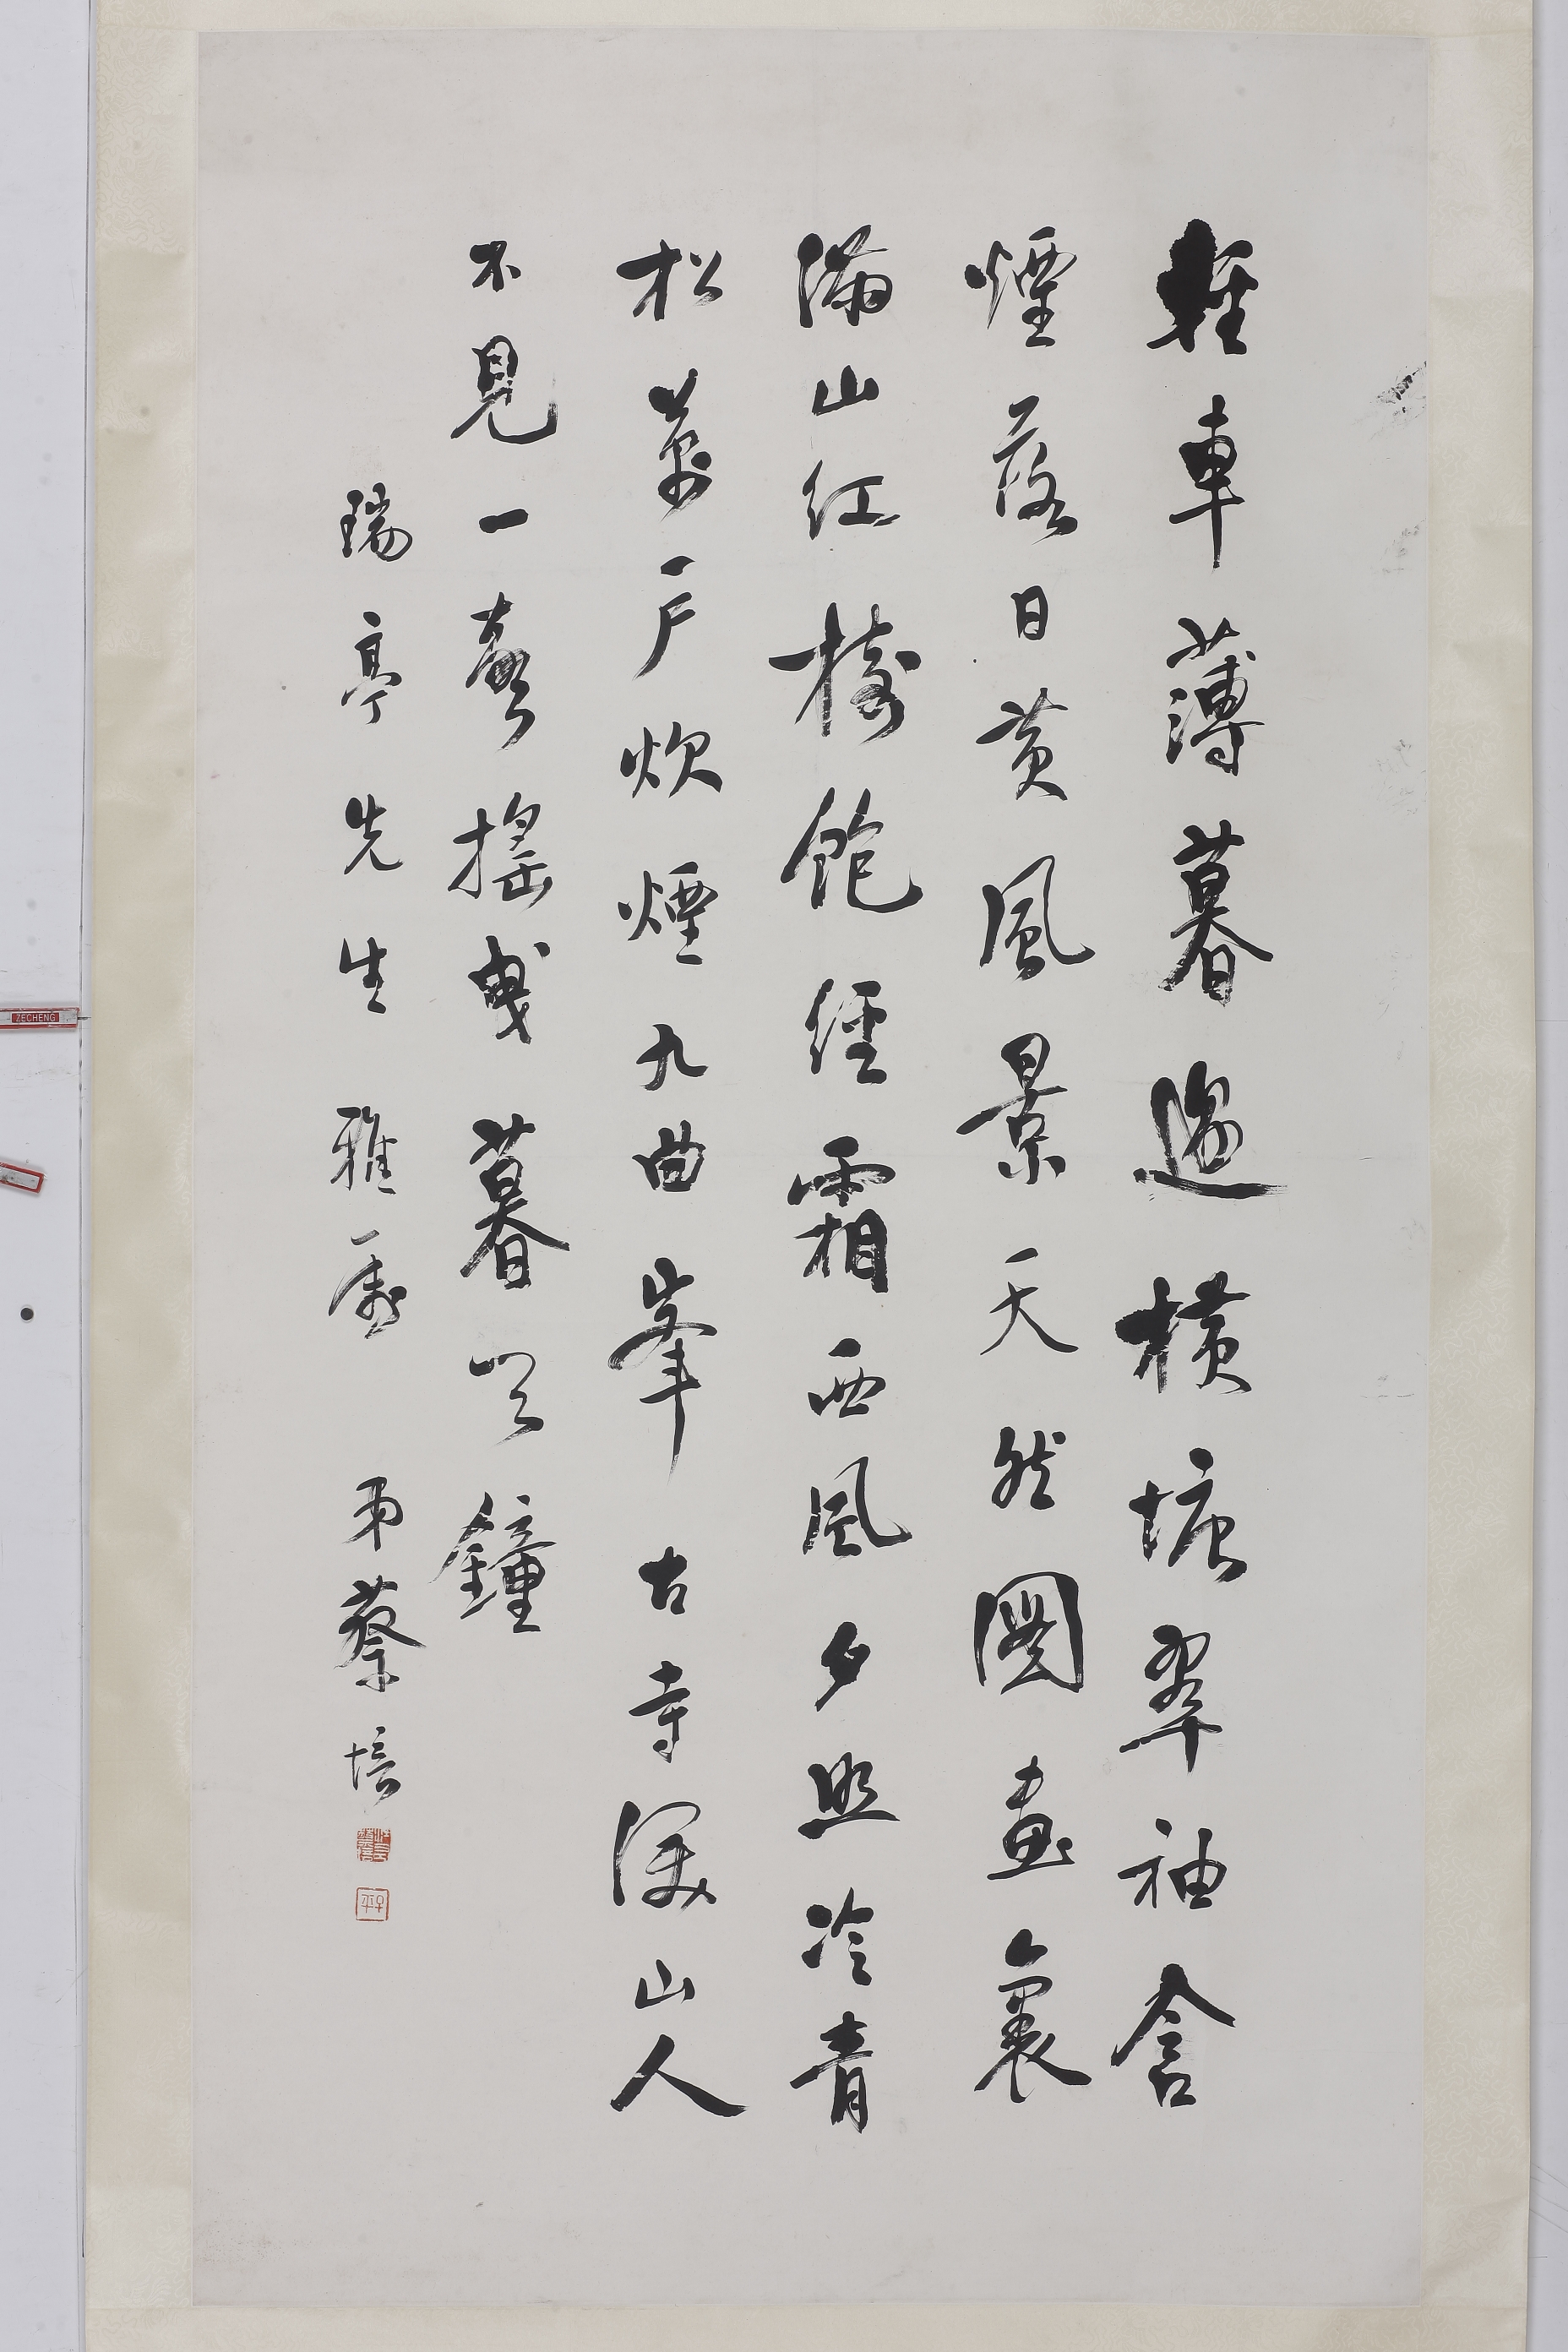 輕車薄暮過橫塘翠袖含
煙落日黃風景天然圖畫裏
滿山紅樹飽經霜西風夕照冷青
松萬戶炊煙九曲峯古寺深山人
不見一聲搖曳暮雲鐘
瑞亭先生 雅屬 弟蔡培
ZECHENG